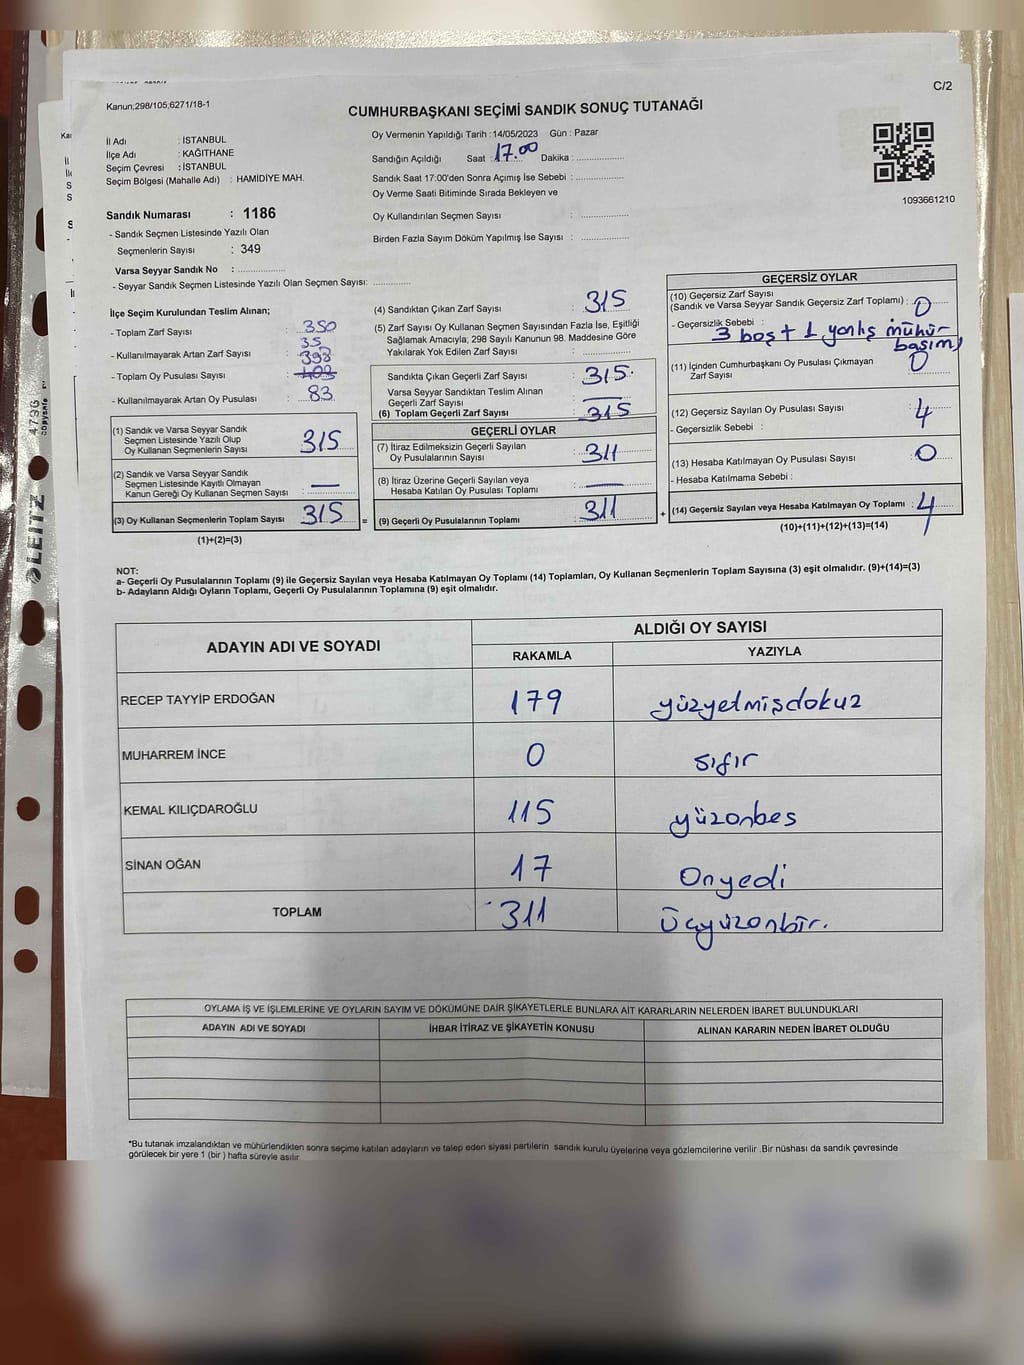 C/2
Kanun;298/105;6271/18-1
CUMHURBAŞKANI SEÇİMİ SANDIK SONUÇ TUTANAĞI
İl Adı : İSTANBUL
İlçe Adı : KAĞITHANE
Seçim Çevresi : İSTANBUL
Seçim Bölgesi (Mahalle Adı) : HAMİDİYE MAH.
Sandık Numarası : 1186
- Sandık Seçmen Listesinde Yazılı Olan
Seçmenlerin Sayısı : 349
Varsa Seyyar Sandık No : ................
- Seyyar Sandık Seçmen Listesinde Yazılı Olan Seçmen Sayısı: ..............
Oy Vermenin Yapıldığı Tarih :14/05/2023 Gün : Pazar
Sandığın Açıldığı Saat :17.00 Dakika : ................
Sandık Saat 17:00'den Sonra Açımış İse Sebebi : ................
Oy Verme Saati Bitiminde Sırada Bekleyen ve
Oy Kullandırılan Seçmen Sayısı : ................
Birden Fazla Sayım Döküm Yapılmış İse Sayısı : ................
1093661210
İlçe Seçim Kurulundan Teslim Alınan;
- Toplam Zarf Sayısı : 350
- Kullanılmayarak Artan Zarf Sayısı : 35
- Toplam Oy Pusulası Sayısı : 398 403
- Kullanılmayarak Artan Oy Pusulası : 83
(1) Sandık ve Varsa Seyyar Sandık
Seçmen Listesinde Yazılı Olup
Oy Kullanan Seçmenlerin Sayısı : 315
(2) Sandık ve Varsa Seyyar Sandık
Seçmen Listesinde Kayıtlı Olmayan
Kanun Gereği Oy Kullanan Seçmen Sayısı : —
(3) Oy Kullanan Seçmenlerin Toplam Sayısı : 315 =
(1)+(2)=(3)
(4) Sandıktan Çıkan Zarf Sayısı : 315
(5) Zarf Sayısı Oy Kullanan Seçmen Sayısından Fazla İse, Eşitliği
Sağlamak Amacıyla; 298 Sayılı Kanunun 98. Maddesine Göre
Yakılarak Yok Edilen Zarf Sayısı : ................
Sandıkta Çıkan Geçerli Zarf Sayısı : 315
Varsa Seyyar Sandıktan Teslim Alınan
Geçerli Zarf Sayısı : —
(6) Toplam Geçerli Zarf Sayısı : 315
GEÇERLİ OYLAR
(7) İtiraz Edilmeksizin Geçerli Sayılan
Oy Pusulalarının Sayısı : 311
(8) İtiraz Üzerine Geçerli Sayılan veya
Hesaba Katılan Oy Pusulası Toplamı : —
(9) Geçerli Oy Pusulalarının Toplamı : 311 +
GEÇERSİZ OYLAR
(10) Geçersiz Zarf Sayısı
(Sandık ve Varsa Seyyar Sandık Geçersiz Zarf Toplamı) : 0
- Geçersizlik Sebebi :
3 boş + 1 yanlış mühür
basımı
(11) İçinden Cumhurbaşkanı Oy Pusulası Çıkmayan
Zarf Sayısı : 0
(12) Geçersiz Sayılan Oy Pusulası Sayısı : 4
- Geçersizlik Sebebi :
(13) Hesaba Katılmayan Oy Pusulası Sayısı : 0
- Hesaba Katılmama Sebebi :
(14) Geçersiz Sayılan veya Hesaba Katılmayan Oy Toplamı : 4
(10)+(11)+(12)+(13)=(14)
NOT:
a- Geçerli Oy Pusulalarının Toplamı (9) ile Geçersiz Sayılan veya Hesaba Katılmayan Oy Toplamı (14) Toplamları, Oy Kullanan Seçmenlerin Toplam Sayısına (3) eşit olmalıdır. (9)+(14)=(3)
b- Adayların Aldığı Oyların Toplamı, Geçerli Oy Pusulalarının Toplamına (9) eşit olmalıdır.
ADAYIN ADI VE SOYADI
ALDIĞI OY SAYISI
RAKAMLA YAZIYLA
RECEP TAYYİP ERDOĞAN 179 yüzyetmişdokuz
MUHARREM İNCE 0 sıfır
KEMAL KILIÇDAROĞLU 115 yüzonbeş
SİNAN OĞAN 17 Onyedi
TOPLAM 311 Üçyüzonbir.
OYLAMA İŞ VE İŞLEMLERİNE VE OYLARIN SAYIM VE DÖKÜMÜNE DAİR ŞİKAYETLERLE BUNLARA AİT KARARLARIN NELERDEN İBARET BULUNDUKLARI
ADAYIN ADI VE SOYADI İHBAR İTİRAZ VE ŞİKAYETİN KONUSU ALINAN KARARIN NEDEN İBARET OLDUĞU
*Bu tutanak imzalandıktan ve mühürlendikten sonra seçime katılan adayların ve talep eden siyasi partilerin sandık kurulu üyelerine veya gözlemcilerine verilir .Bir nüshası da sandık çevresinde
görülecek bir yere 1 (bir ) hafta süreyle asılır.
LEITZ
4796
copysafe